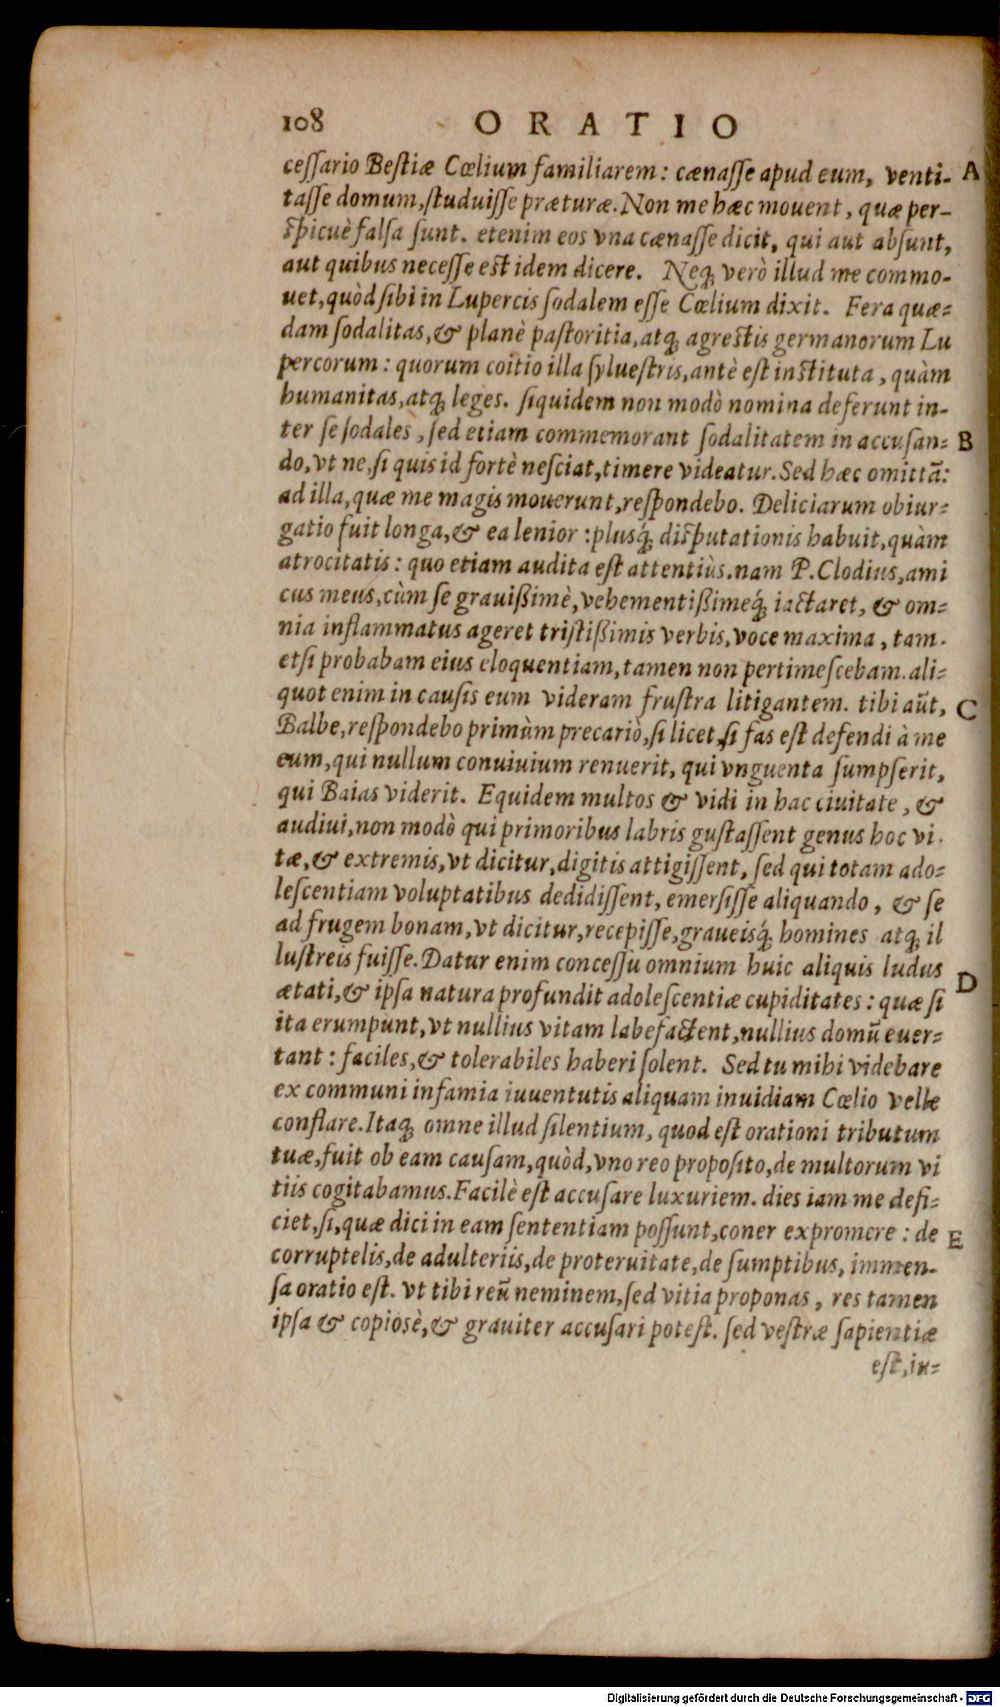 108 ORATIO
ceſſario Beſtiæ Cœlium familiarem: cænaſſe apud eum, venti- A
taſſe domum, ſtuduiſſe præturæ. Non me hæc mouent, quæ per-
ſpicuè falſa ſunt. etenim eos vna cænaſſe dicit, qui aut abſunt,
aut quibus neceſſe eſt idem dicere. Neq; verò illud me commo-
uet, quòd ſibi in Lupercis ſodalem eſſe Cœlium dixit. Fera quæ-
dam ſodalitas, & planè paſtoritia, atq; agreſtis germanorum Lu
percorum: quorum coitio illa ſylueſtris, antè eſt inſtituta, quàm
humanitas, atq; leges. ſiquidem non modò nomina deferunt in-
ter ſe ſodales, ſed etiam commemorant ſodalitatem in accuſan- B
do, vt ne, ſi quis id fortè neſciat, timere videatur. Sed hæc omittā:
ad illa, quæ me magis mouerunt, reſpondebo. Deliciarum obiur-
gatio fuit longa, & ea lenior: plusq́; diſputationis habuit, quàm
atrocitatis: quo etiam audita eſt attentiùs. nam P. Clodius, ami
cus meus, cùm ſe grauißimè, vehementißimeq́; iactaret, & om-
nia inflammatus ageret triſtißimis verbis, voce maxima, tam-
etſi probabam eius eloquentiam, tamen non pertimeſcebam. ali-
quot enim in cauſis eum videram fruſtra litigantem. tibi aūt, C
Balbe, reſpondebo primùm precariò, ſi licet, ſi fas eſt defendi à me
eum, qui nullum conuiuium renuerit, qui vnguenta ſumpſerit,
qui Baias viderit. Equidem multos & vidi in hac ciuitate, &
audiui, non modò qui primoribus labris guſtaſſent genus hoc vi-
tæ, & extremis, vt dicitur, digitis attigiſſent, ſed qui totam ado-
leſcentiam voluptatibus dedidiſſent, emerſiſſe aliquando, & ſe
ad frugem bonam, vt dicitur, recepiſſe, graueisq́; homines atq; il
luſtreis fuiſſe. Datur enim conceſſu omnium huic aliquis ludus
ætati, & ipſa natura profundit adoleſcentiæ cupiditates: quæ ſi D
ita erumpunt, vt nullius vitam labefactent, nullius domū euer-
tant: faciles, & tolerabiles haberi ſolent. Sed tu mihi videbare
ex communi infamia iuuentutis aliquam inuidiam Cœlio velle
conflare. Itaq; omne illud ſilentium, quod eſt orationi tributum
tuæ, fuit ob eam cauſam, quòd, vno reo propoſito, de multorum vi
tiis cogitabamus. Facilè eſt accuſare luxuriem. dies iam me defi-
ciet, ſi, quæ dici in eam ſententiam poſſunt, coner expromere: de E
corruptelis, de adulteriis, de proteruitate, de ſumptibus, immen-
ſa oratio eſt. vt tibi reū neminem, ſed vitia proponas, res tamen
ipſa & copioſè, & grauiter accuſari poteſt. ſed veſtræ ſapientiæ
eſt, in-
Digitalisierung gefördert durch die Deutsche Forschungsgemeinschaft - DFG